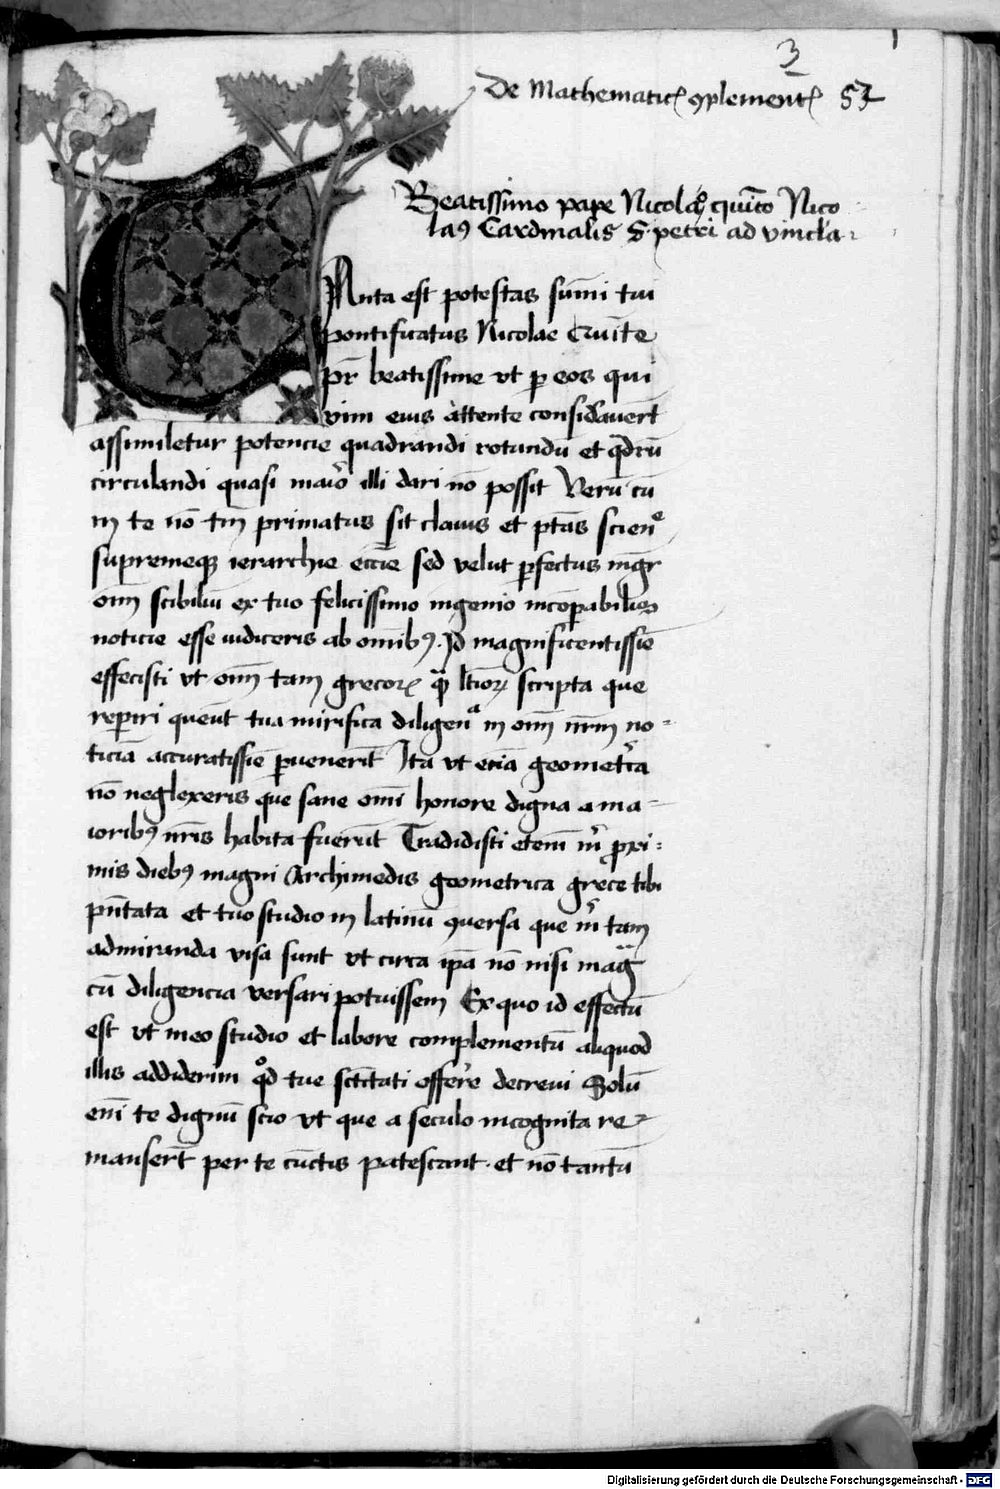 3
De Mathematicꝭ ꝯplementꝭ 57
Beatissimo pape Nicolao qui̅to Nico
laꝯ Cardinalis S. petri ad vincl'a
TAnta est potestas su̅mi tui
pontificatus Nicolae Qui̅te
pr̅ beatissime vt ꝑ eos qui
vim eius attente considauer̅t
assimiletur potencie quadrandi rotundu̅ et q̅dru̅
circulandi quasi maior illi dari no̅ possit Veru̅ cu̅
in te no̅ tm̅ primatus sit clauis et ptᷓs scien̅ᵉ
supremeqꝫ ierarchie ecc̅ie sed velut ꝑfectus mg̅r
om̅ scibiliu̅ ex tuo felicissimo ingenio incoꝑabilis
noticie esse iudiceris ab omi̅bꝯ. Id magnificentissi̅e
effecisti vt om̅ tam grecoꝝ qᷓ lt̅ioꝝ scripta que
reperiri queu̅t tua mirifica diligen̅ᵃ in om̅ nr̅m no-
ticia̅ accuratissi̅e ꝑuenerit Ita vt ecia̅ geomet'ca
no̅ neglexeris que sane omi̅ honore digna a ma-
ioribꝯ nr̅is habita fueru̅t Tradidisti eteni̅ m̅ⁱ ꝓxi-
mis diebꝯ magni Archimedis geometrica grece tibi
pn̅tata et tuo studio in latinu̅ ꝯuersa que m̅ⁱ tam
admiranda visa sunt vt circa ip̅a no̅ nisi mag̅
cu̅ diligencia versari potuissem Ex quo id effectu̅
est vt meo studio et labore complementu̅ aliquod
illis addiderim qͦd tue sc̅titati offerre decreui Solu̅
eni̅ te dignu̅ scio vt que a seculo incognita re-
manser̅t per te cu̅ctis patescant. et no̅ tantu̅
Digitalisierung gefördert durch die Deutsche Forschungsgemeinschaft - DFG